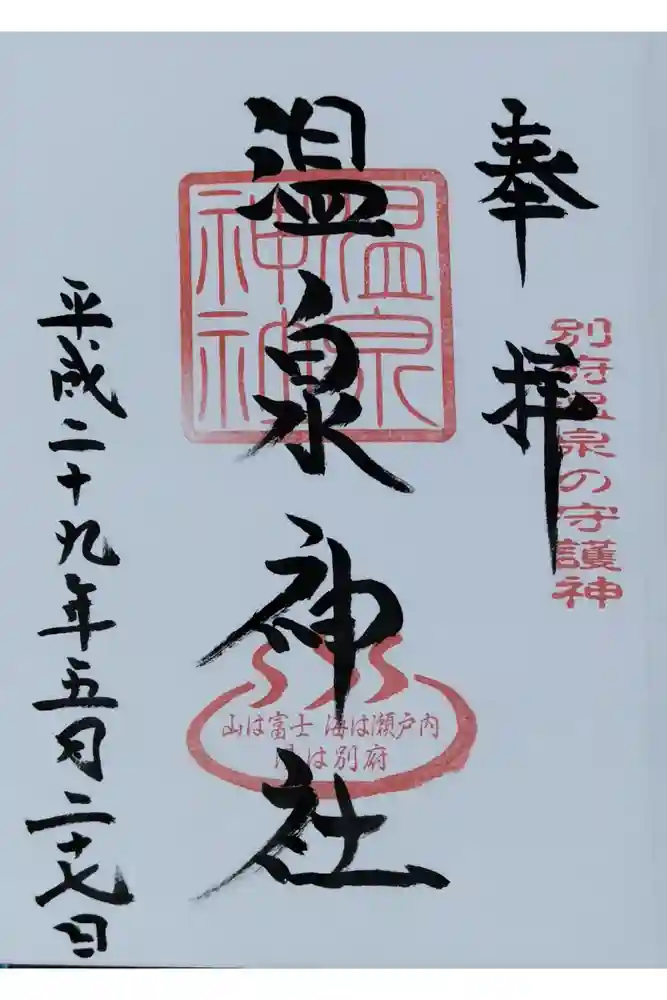 奉拝
別府温泉の守護神
温泉神社
温泉神社
山は富士 海は瀬戸内
湯は別府
平成二十九年五月二十七日